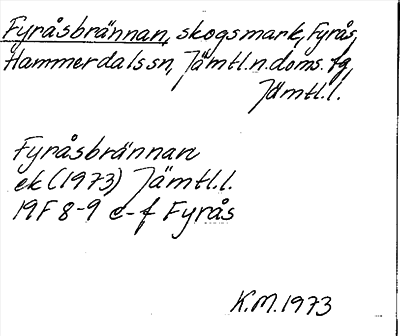 Fyråsbrännan, skogsmark, Fyrås,
Hammerdals sn, Jämtl.n.doms. tg,
Jämtl.l.
Fyråsbrännan
ek (1973) Jämtl.l.
19F 8-9 e-f Fyrås
K.M. 1973